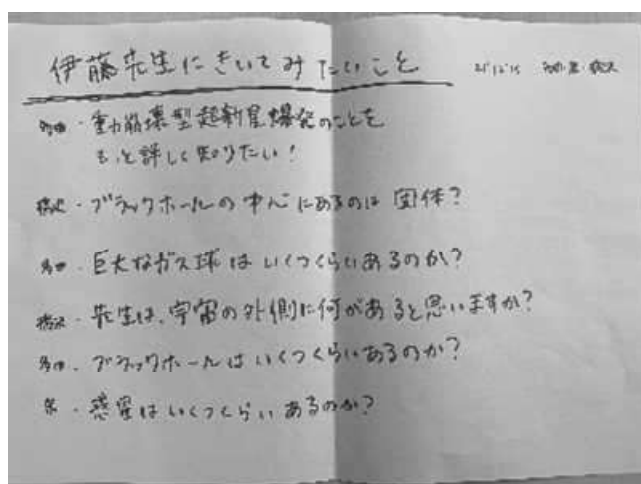 伊藤先生にきいてみたいこと
・重力崩壊型超新星爆発のことを
もっと詳しく知りたい!
・ブラックホールの中心にあるのは固体?
・巨大なガス球はいくつくらいあるのか?
・先生は、宇宙の外側に何があると思いますか?
・ブラックホールはいくつくらいあるのか?
・惑星はいくつくらいあるのか?